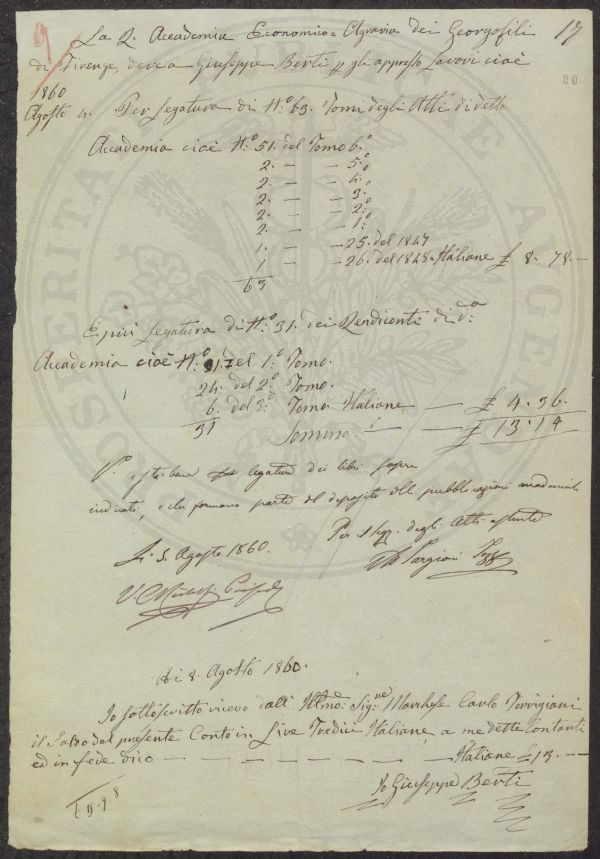 9
17
20
La R. Accademia Economico=Agraria dei Georgofili
di Firenze, deve a Giuseppe Berti p gli appresso Lavori cioè
1860
Agosto 4. Per Legatura di N.o 63. Tomi degli Atti di detta
Accademia cioè N.o 51. del Tomo 6.o
2. — — 5.o
2. — — 4.o
2. — — 3.o
2. — — 2.o
2. — — 1.o
1. — — 25. del 1847
1 — — 26. del 1848 = Italiane £ 8. 78. —
63
E più Legatura di N.o 31. dei Rendiconti di d.a
Accademia cioè N.o 1. del 1.o Tomo.
24. del 2.o Tomo.
6. del 3.o Tomo Italiane — £ 4. 36.
31 Somma — £ 13. 14
legatura dei libri sopra
indicati, che formano parte del deposito delle pubblicazioni accademiche
Per il Segr. degli Atti assente
Li 5. Agosto 1860.
Targioni
Adi 8. Agosto 1860.
Io sottoscritto ricevo dall' Illmo: Sig:re Marchese Carlo Torrigiani
il Saldo del presente Conto in Lire Tredici Italiane, a me dette Contanti
ed in fede dico — — — — — — — Italiane £ 13. — —
Io Giuseppe Berti